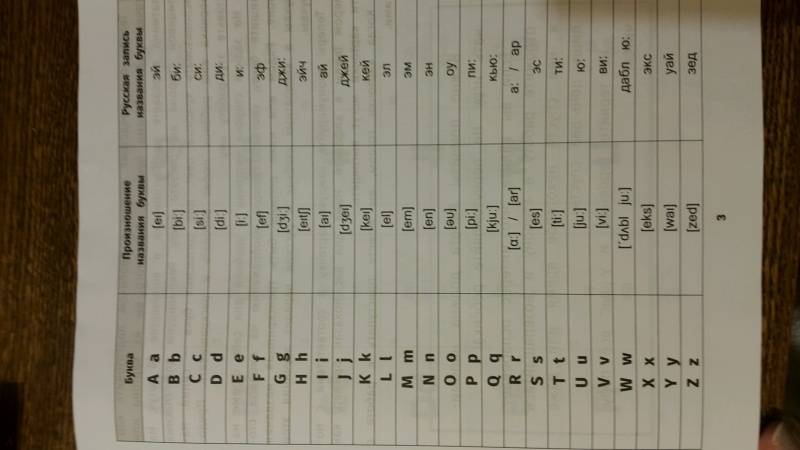 Буква Произношение названия буквы Русская запись названия буквы
A a [eɪ] эй
B b [biː] би:
C c [siː] си:
D d [diː] ди:
E e [iː] и:
F f [ef] эф
G g [dʒiː] джи:
H h [eɪtʃ] эйч
I i [aɪ] ай
J j [dʒeɪ] джей
K k [keɪ] кей
L l [el] эл
M m [em] эм
N n [en] эн
O o [əʊ] оу
P p [piː] пи:
Q q [kjuː] кью:
R r [ɑː] / [ar] а: / ар
S s [es] эс
T t [tiː] ти:
U u [juː] ю:
V v [viː] ви:
W w [ˈdʌbl juː] дабл ю:
X x [eks] экс
Y y [waɪ] уай
Z z [zed] зед
3